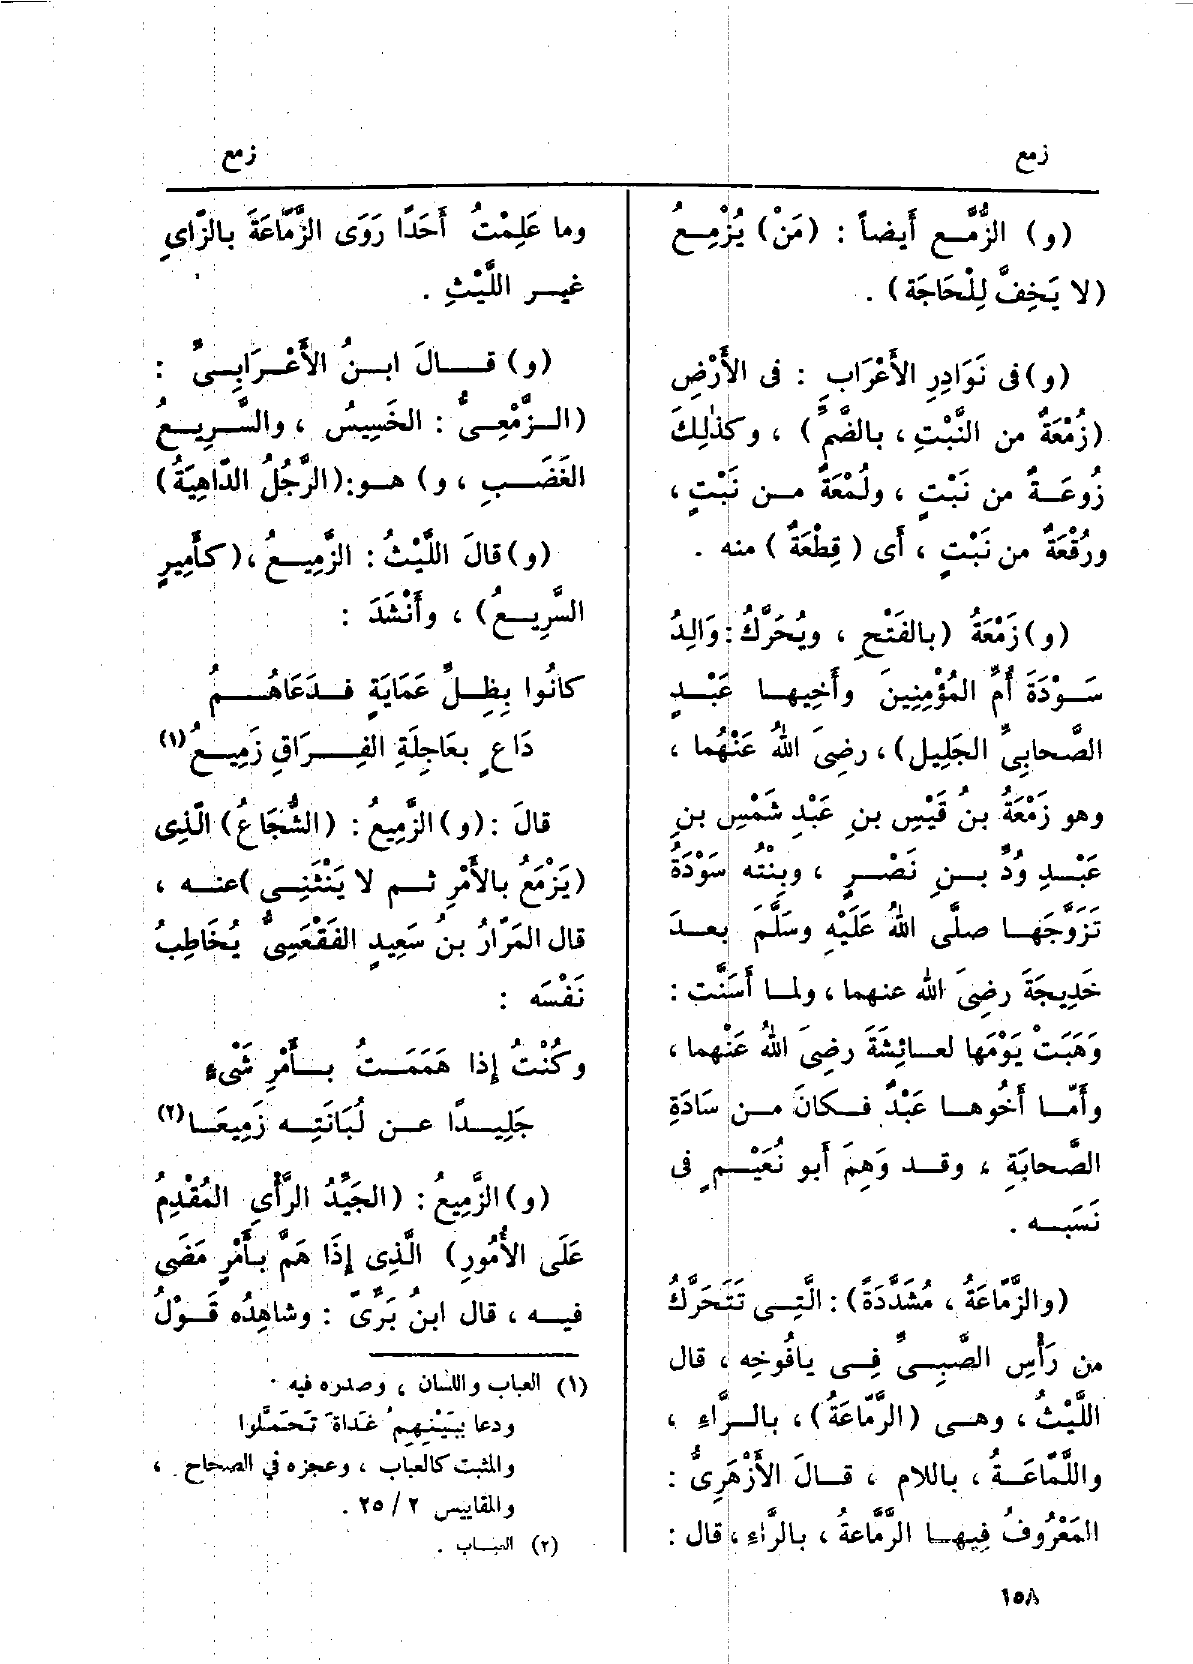 زمع
زمع
(و) الزُّمَّع أَيضاً : (مَنْ) يُزْمِعُ
(لا يَخِفُّ لِلْحَاجَة) .
(و) فى نَوَادِرِ الأَعْرَابِ : فى الأَرْضِ
(زُمْعَةٌ من النَّبْتِ ، بالضَّمِّ) ، وكذٰلِكَ
زُوعَةٌ من نَبْتٍ ، ولُمْعَةٌ من نَبْتٍ ،
ورُقْعَةٌ من نَبْتٍ ، أَى (قِطْعَةٌ) منه .
(و) زَمْعَةُ (بالفَتْحِ ، ويُحَرَّكُ : وَالِدُ
سَوْدَةَ أُمِّ المُؤْمِنِينَ وأَخِيها عَبْدٍ
الصَّحابِىِّ الجَلِيل) ، رضِىَ اللهُ عَنْهُما ،
وهو زَمْعَةُ بنُ قَيْسِ بنِ عَبْدِ شَمْسِ بنِ
عَبْدِ وُدِّ بنِ نَصْرٍ ، وبِنْتُه سَوْدَةُ
تَزَوَّجَها صلَّى اللهُ عَلَيْهِ وسَلَّمَ بعدَ
خَدِيجَةَ رضِىَ الله عنهما ، ولما أَسَنَّت :
وَهَبَتْ يَوْمَها لعائِشَةَ رضِىَ اللهُ عَنْهما ،
وأَمّا أَخُوها عَبْدٌ فكانَ من سَادَةِ
الصَّحابَةِ ، وقد وَهِمَ أبو نُعَيْمٍ فى
نَسَبِه .
(والزَّمّاعَةُ ، مُشَدَّدَةً) : الَّتِى تَتَحَرَّكُ
من رَأْسِ الصَّبِىِّ فِى يافُوخِه ، قال
اللَّيْثُ ، وهى (الرَّمّاعَةُ) ، بالرَّاءِ ،
واللَّمّاعَةُ ، باللام ، قالَ الأَزْهَرِىُّ :
المَعْرُوفُ فِيها الرَّمَّاعةُ ، بالرَّاءِ ، قال :
وما عَلِمْتُ أَحَدًا رَوَى الزَّمَّاعَةَ بالزّاىِ
غير اللَّيْثِ .
(و) قالَ ابنُ الأَعْرَابِىِّ :
(الزَّمْعِىُّ : الخَسِيسُ ، والسَّرِيعُ
الغَضَبِ ، و) هو : (الرَّجُلُ الدّاهِيَةُ)
(و) قالَ اللَّيْثُ : الزَّمِيعُ ، (كأَمِيرٍ
السَّرِيعُ) ، وأَنْشَدَ :
كانُوا بِظِلِّ عَمَايَةٍ فدَعَاهُمُ
دَاعٍ بعَاجِلَةِ الفِرَاقِ زَمِيعُ (١)
قالَ : (و) الزَّمِيعُ : (الشُّجَاعُ) الَّذِى
(يَزْمَعُ بالأَمْرِ ثم لا يَنْثَنِى) عنه ،
قال المَرّارُ بنُ سَعِيدٍ الفَقْعَسِىُّ يُخَاطِبُ
نَفْسَه :
وكُنْتُ إِذا هَمَمَتُ بأَمْرِ شَىْءٍ
جَلِيدًا عن لُبَانَتِه زَمِيعَا (٢)
(و) الزَّمِيعُ : (الجَيِّدُ الرَّأْىِ المُقْدِمُ
عَلَى الأُمُورِ) الَّذِى إِذَا هَمَّ بأَمْرٍ مَضَى
فيه ، قال ابنُ بَرِّىّ : وشاهِدُه قَوْلُ
(١) العباب واللسان ، وصدره فيه .
ودعا ببَيْنِهِمُ غَداةَ تَحَمَّلوا
والمثبت كالعباب ، وعجزه في الصحاح ،
والمقاييس ٢ / ٢٥ .
(٢) العباب .
١٥٨